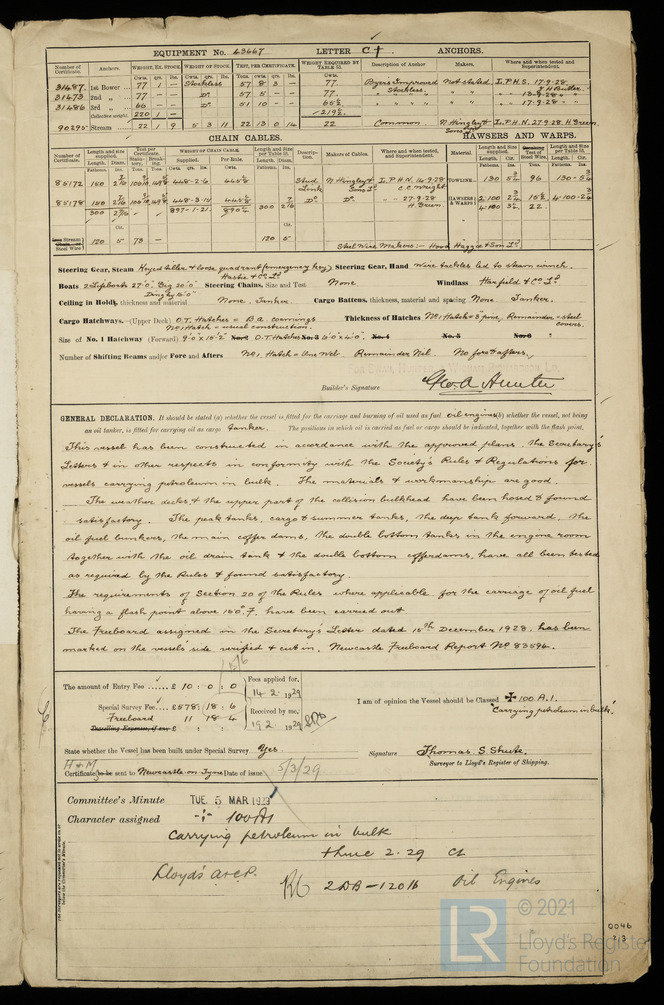 EQUIPMENT No. 43667 LETTER C† ANCHORS.
Number of Certificate. Anchors. WEIGHT, EX. STOCK. WEIGHT OF STOCK. TEST, PER CERTIFICATE. WEIGHT REQUIRED BY TABLE 53. Description of Anchor Makers. Where and when tested and Superintendent.
Cwts. qrs. lbs. Cwts. qrs. lbs. Tons. cwts. qrs. lbs. Cwts.
31487. 1st Bower ... 77 1 - Stockless 57 8 3 - 77. Byers Improved Stockless. Not stated. L.P.H.S. 17-9-28. J.H. Butler.
31473 2nd „ ... 77 - - Do 57 5 - - 77. „ „ „ „ „ 13-9-28 „
31486 3rd „ ... 66 - - Do 51 10 - - 65½ „ „ „ „ „ 17-9-28 „
Collective weight. 220 1 - 219½.
90295 Stream ...... 22 1 9 5 3 11 22 13 0 14 22 Common N. Hingley & Sons Ld L.P.H.N. 27.9.28. H. Green.
CHAIN CABLES. HAWSERS AND WARPS.
Number of Certificate. Length and size supplied. Test per Certificate. WEIGHT OF CHAIN CABLE. Length and size per Table 53. Description. Makers of Cables. Where and when tested, and Superintendent. Material Length and size supplied. Test of Steel Wire. Length and size per Table 53.
Fathoms. Ins. Statutory. Breaking. Supplied. Per Rule. Fathoms. Ins. Fathoms. Cir. Tons. Fathoms. Ins.
85172 150 448-2-6 445⅛ Stud Link N. Hingley & Sons Ld L.P.H.N. 14-9-28 C.C. Wright TOWLINE 130 96 130-
85178 150 448-3-15 445⅛ Do Do „ 27-9-28 H. Green. HAWSERS & WARPS 2-100 15½ 4-100-
300 897-1-21. 890¼ 300 4-130 22.
Stream Steel Wire 120 5 73 - 120 5
Steel Wire Makers:- Hood Haggie & Son Ld
Steering Gear, Steam Keyed tiller & loose quadrant (emergency key) Hastie & Co Ld Steering Gear, Hand Wire tackles led to steam winch.
Boats 2 Lifeboats 27'0" Gig 20'0" Dinghy 16'0" Steering Chains, Size and Test None Windlass Harfield & Co Ld
Ceiling in Holds, thickness and material None. Tanker. Cargo Battens, thickness, material and spacing None Tanker.
Cargo Hatchways.—(Upper Deck) O.T. Hatches = B.a. coamings No 1 Hatch = usual construction. Thickness of Hatches No 1 Hatch = 3" pine. Remainder = steel covers.
Size of No. 1 Hatchway (Forward) 9'0" x 15'2" No. 2 O.T. Hatches No. 3 6'0" x 4'0" No. 4 No. 5 No. 6
Number of Shifting Beams and/or Fore and Afters No 1 Hatch = One Web. Remainder Nil. No fore & afters.
Builder's Signature Geo. A Hunter
GENERAL DECLARATION. It should be stated (a) whether the vessel is fitted for the carriage and burning of oil used as fuel oil engines (b) whether the vessel, not being
an oil tanker, is fitted for carrying oil as cargo tanker. The positions in which oil is carried as fuel or cargo should be indicated, together with the flash point.
This vessel has been constructed in accordance with the approved plans, the Secretary's
Letters & in other respects in conformity with the Society's Rules & Regulations for
vessels carrying petroleum in bulk. The materials & workmanship are good.
The weather decks & the upper part of the collision bulkhead have been hosed & found
satisfactory. The peak tanks, cargo & summer tanks, the deep tank forward, the
oil fuel bunkers, the main coffer dams, the double bottom tanks in the engine room
together with the oil drain tank & the double bottom cofferdams, have all been tested
as required by the Rules & found satisfactory.
The requirements of Section 20 of the Rules where applicable, for the carriage of oil fuel
having a flash point above 150° F. have been carried out
The Freeboard assigned in the Secretary's Letter dated 15th December 1928, has been
marked on the vessels' side, verified & cut in, Newcastle Freeboard Report No 83594.
The amount of Entry Fee ...... £ 10 : 0 : 0 Fees applied for, 14.2.1929
Special Survey Fee .... £578 : 18 : 6 Received by me, 19.2.1929
Freeboard 11 18 4
Travelling Expenses, if any £ : :
I am of opinion the Vessel should be Classed ✠ 100.A.1.
"Carrying petroleum in bulk".
State whether the Vessel has been built under Special Survey Yes. Signature Thomas S Shute.
Surveyor to Lloyd's Register of Shipping.
H & M
Certificate to be sent to Newcastle-on-Tyne Date of issue 5/3/29
Committee's Minute TUE. 5 MAR 1929
Character assigned 100A1
Carrying petroleum in bulk
thence 2.29 CL
Lloyd's A&CP.
2DB-12016 Oil Engines
© 2021
LR
Lloyd's Register
Foundation
0046